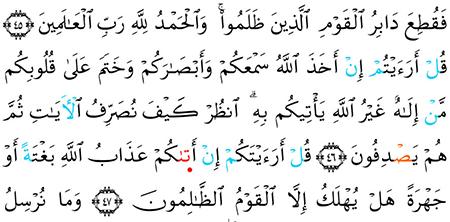 فَقُطِعَ دَابِرُ ٱلْقَوْمِ ٱلَّذِينَ ظَلَمُوا۟ ۚ وَٱلْحَمْدُ لِلَّهِ رَبِّ ٱلْعَـٰلَمِينَ ۝٤٥
قُلْ أَرَءَيْتُمْ إِنْ أَخَذَ ٱللَّهُ سَمْعَكُمْ وَأَبْصَـٰرَكُمْ وَخَتَمَ عَلَىٰ قُلُوبِكُم
مَّنْ إِلَـٰهٌ غَيْرُ ٱللَّهِ يَأْتِيكُم بِهِ ۗ ٱنظُرْ كَيْفَ نُصَرِّفُ ٱلْـَٔايَـٰتِ ثُمَّ
هُمْ يَصْدِفُونَ ۝٤٦ قُلْ أَرَءَيْتَكُمْ إِنْ أَتَىٰكُمْ عَذَابُ ٱللَّهِ بَغْتَةً أَوْ
جَهْرَةً هَلْ يُهْلَكُ إِلَّا ٱلْقَوْمُ ٱلظَّـٰلِمُونَ ۝٤٧ وَمَا نُرْسِلُ